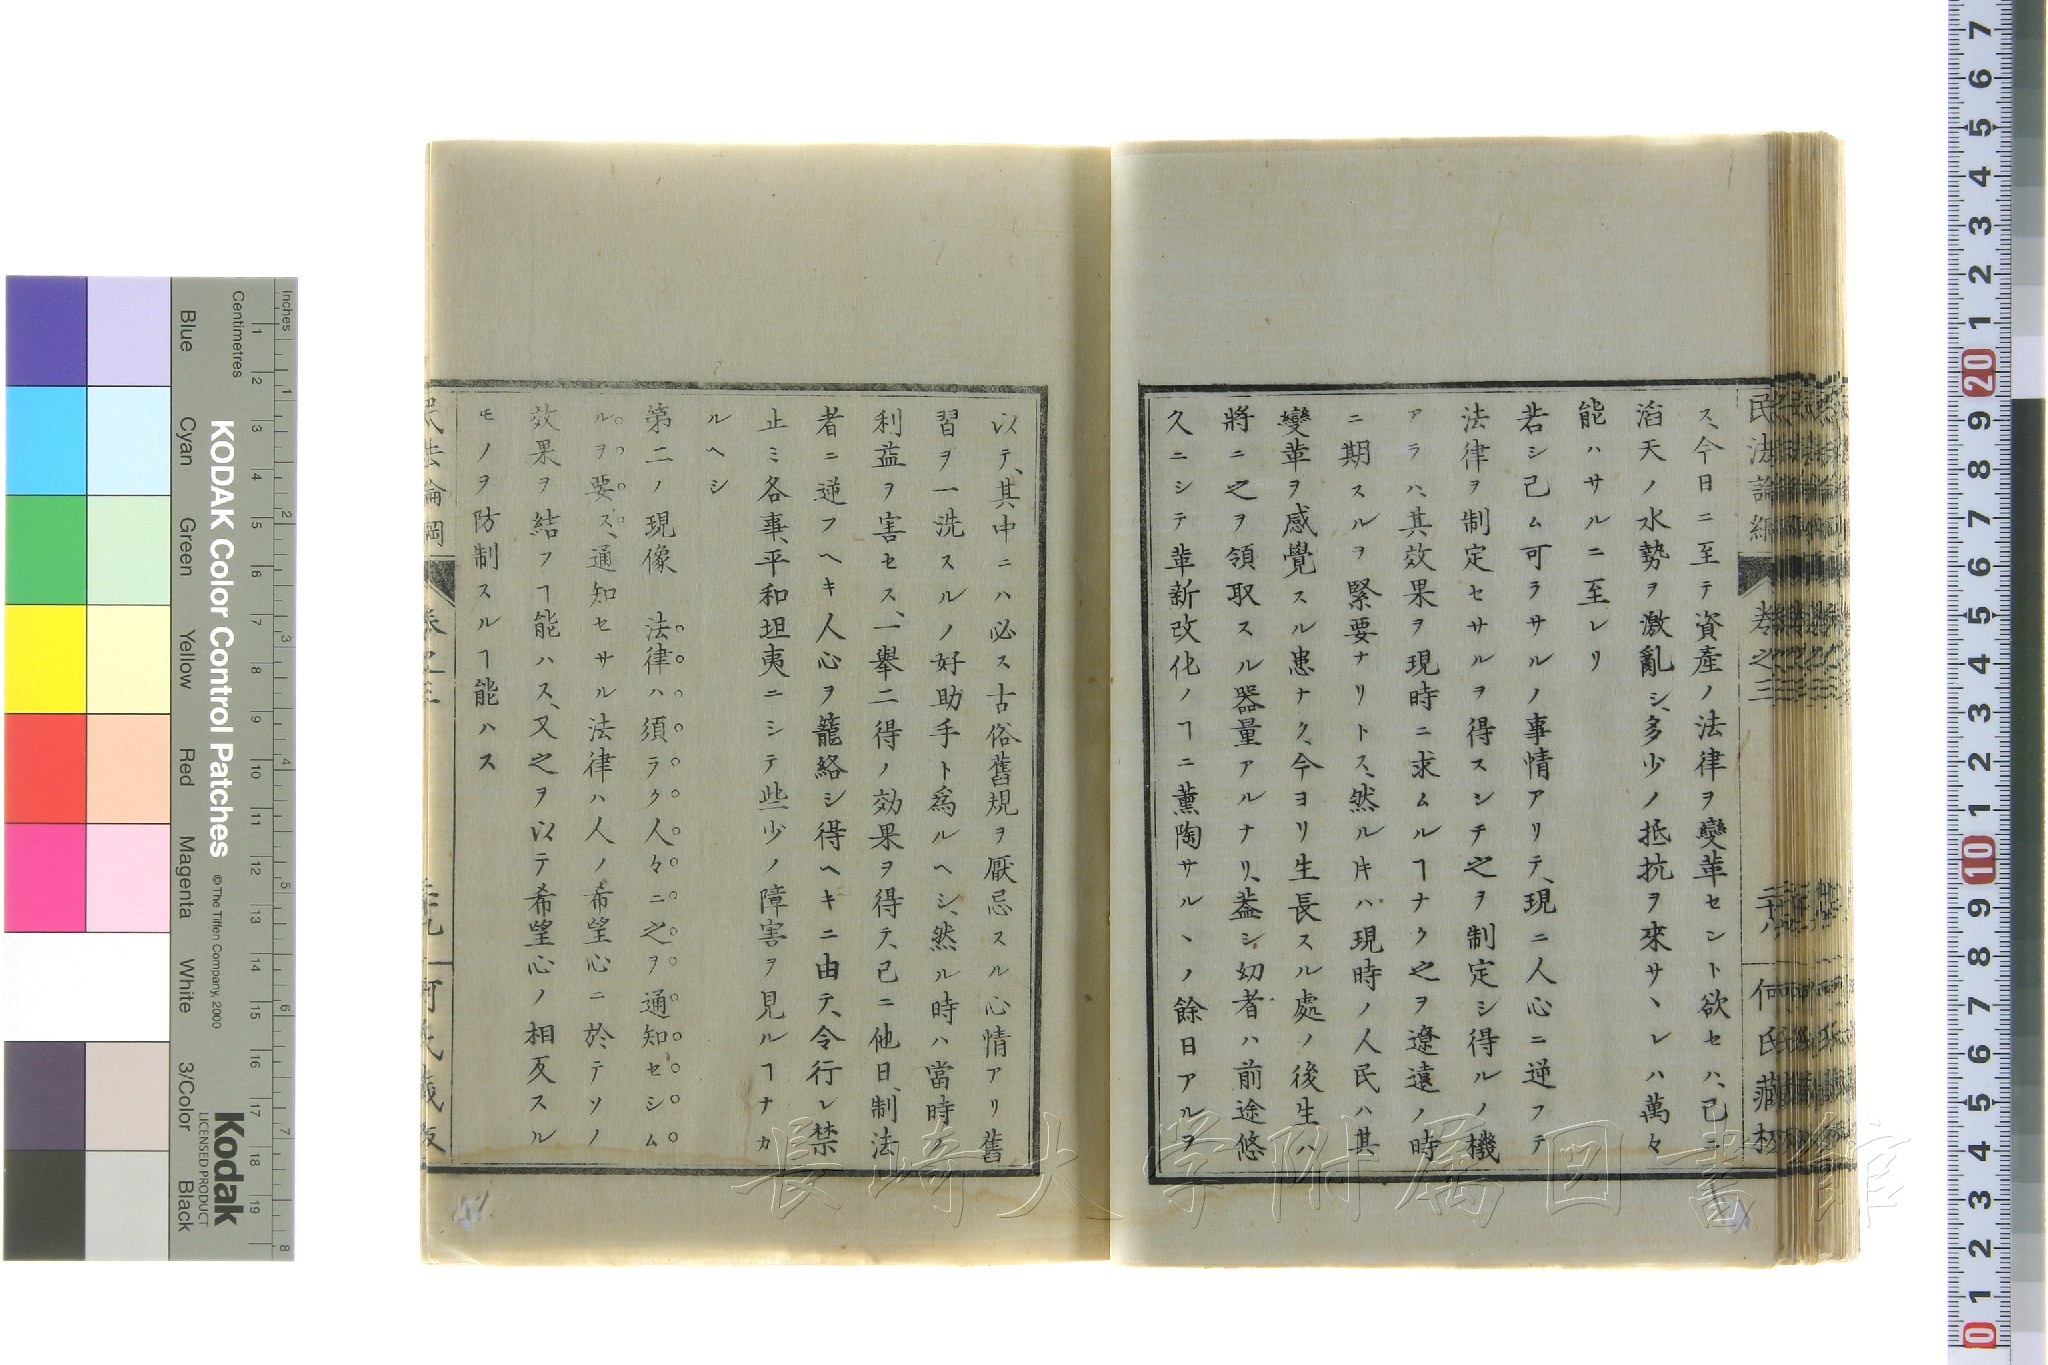 民法論綱 卷之三 二十八 何氏藏板
ス、今日ニ至テ資產ノ法律ヲ變革セント欲セハ、已ニ
滔天ノ水勢ヲ激亂シ、多少ノ抵抗ヲ來サヽレハ萬々
能ハサルニ至レリ
若シ已ム可ラサルノ事情アリテ、現ニ人心ニ逆フテ
法律ヲ制定セサルヲ得スンチ之ヲ制定シ得ルノ機
アラハ、其效果ヲ現時ニ求ムルヿナク之ヲ遼遠ノ時
ニ期スルヲ緊要ナリトス、然ル片ハ現時ノ人民ハ其
變革ヲ感覺スル患ナク、今ヨリ生長スル處ノ後生ハ
將ニ之ヲ領取スル器量アルナリ、蓋シ、幼者ハ前途悠
久ニシテ革新改化ノヿニ薰陶サルヽノ餘日アルヲ
以テ、其中ニハ必ス古俗舊規ヲ厭忌スル心情アリ舊
習ヲ一洗スルノ好助手ト爲ルヘシ、然ル時ハ當時ノ
利益ヲ害セス、一擧二得ノ効果ヲ得テ、已ニ他日、制法
者ニ逆フヘキ人心ヲ籠絡シ得ヘキニ由テ、令行レ禁
止ミ各事、平和坦夷ニシテ些少ノ障害ヲ見ルヿナカ
ルヘシ
第二ノ現像 法律ハ須ラク人々ニ之ヲ通知セシム
ルヲ要ス、通知セサル法律ハ人ノ希望心ニ於テソノ
效果ヲ結フヿ能ハス、又之ヲ以テ希望心ノ相反スル
モノヲ防制スルヿ能ハス
民法論綱 卷之三 何氏藏板
長崎大学附属図書館
Inches
Centimetres
KODAK Color Control Patches
© The Tiffen Company, 2000
Kodak
LICENSED PRODUCT
Blue
Cyan
Green
Yellow
Red
Magenta
White
3/Color
Black
1 2 3 4 5 6 7 8 9 10 11 12 13 14 15 16 17 18 19
1 2 3 4 5 6 7 8
7 6 5 4 3 2 1 20 9 8 7 6 5 4 3 2 1 10 9 8 7 6 5 4 3 2 1 0